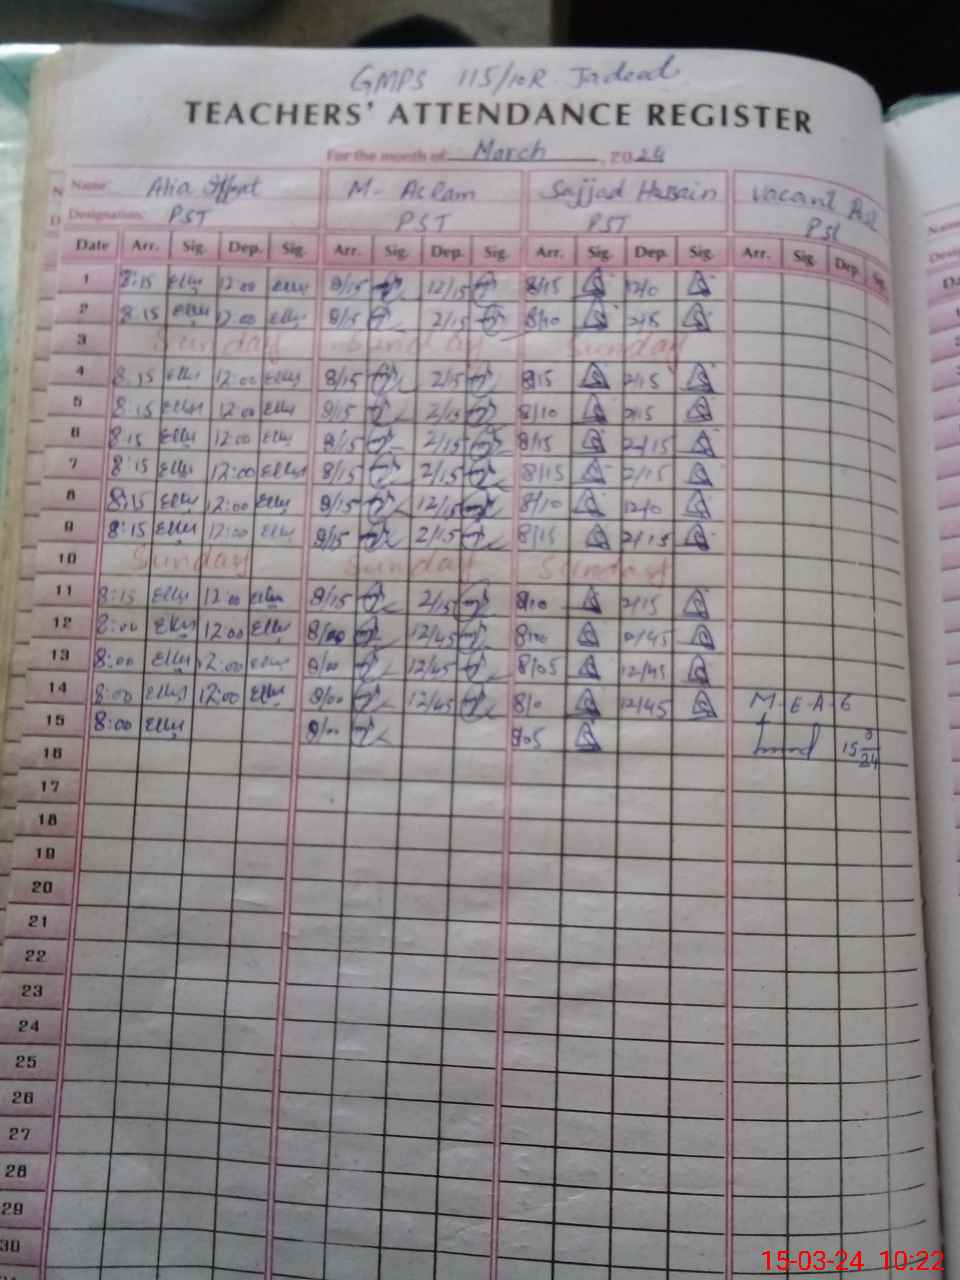 GMPS 115/10R Jadeed
TEACHERS' ATTENDANCE REGISTER
For the month of March, 2024
Name: Alia M. Aslam Sajjad Hussain Vacant
Designation: PST PST PST PST
Date Arr. Sig. Dep. Sig. Arr. Sig. Dep. Sig. Arr. Sig. Dep. Sig. Arr. Sig. Dep. Sig.
1 8:15 12:00 8/15 12/15 8/15 12/0
2 8:15 12:00 8/15 2/15 8/10 2/15
3 Sunday Sunday Sunday
4 8:15 12:00 8/15 2/15 8/15 2/15
5 8:15 12:00 8/15 2/15 8/10 2/15
6 8:15 12:00 8/15 2/15 8/15 2/15
7 8:15 12:00 8/15 2/15 8/15 2/15
8 8:15 12:00 8/15 12/15 8/10 12/0
9 8:15 12:00 8/15 2/15 8/15 2/15
10 Sunday Sunday Sunday
11 8:15 12:00 8/15 2/15 8/10 2/15
12 8:00 12:00 8/00 12/45 8/00 12/45
13 8:00 12:00 8/00 12/45 8/05 12/45
14 8:00 12:00 8/00 12/45 8/0 12/45 M-E-A-6
15 8:00 8/00 8/05
16
17
18
19
20
21
22
23
24
25
26
27
28
29
30
15-03-24 10:22